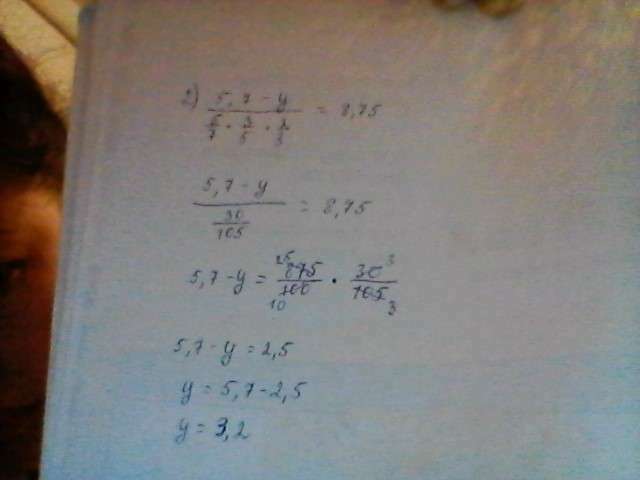 2) (5,7 - y) / (5/7 · 3/5 · 2/3) = 8,75
(5,7 - y) / (30/105) = 8,75
5,7 - y = 875/100 · 30/105
25 10 3 3
5,7 - y = 2,5
y = 5,7 - 2,5
y = 3,2